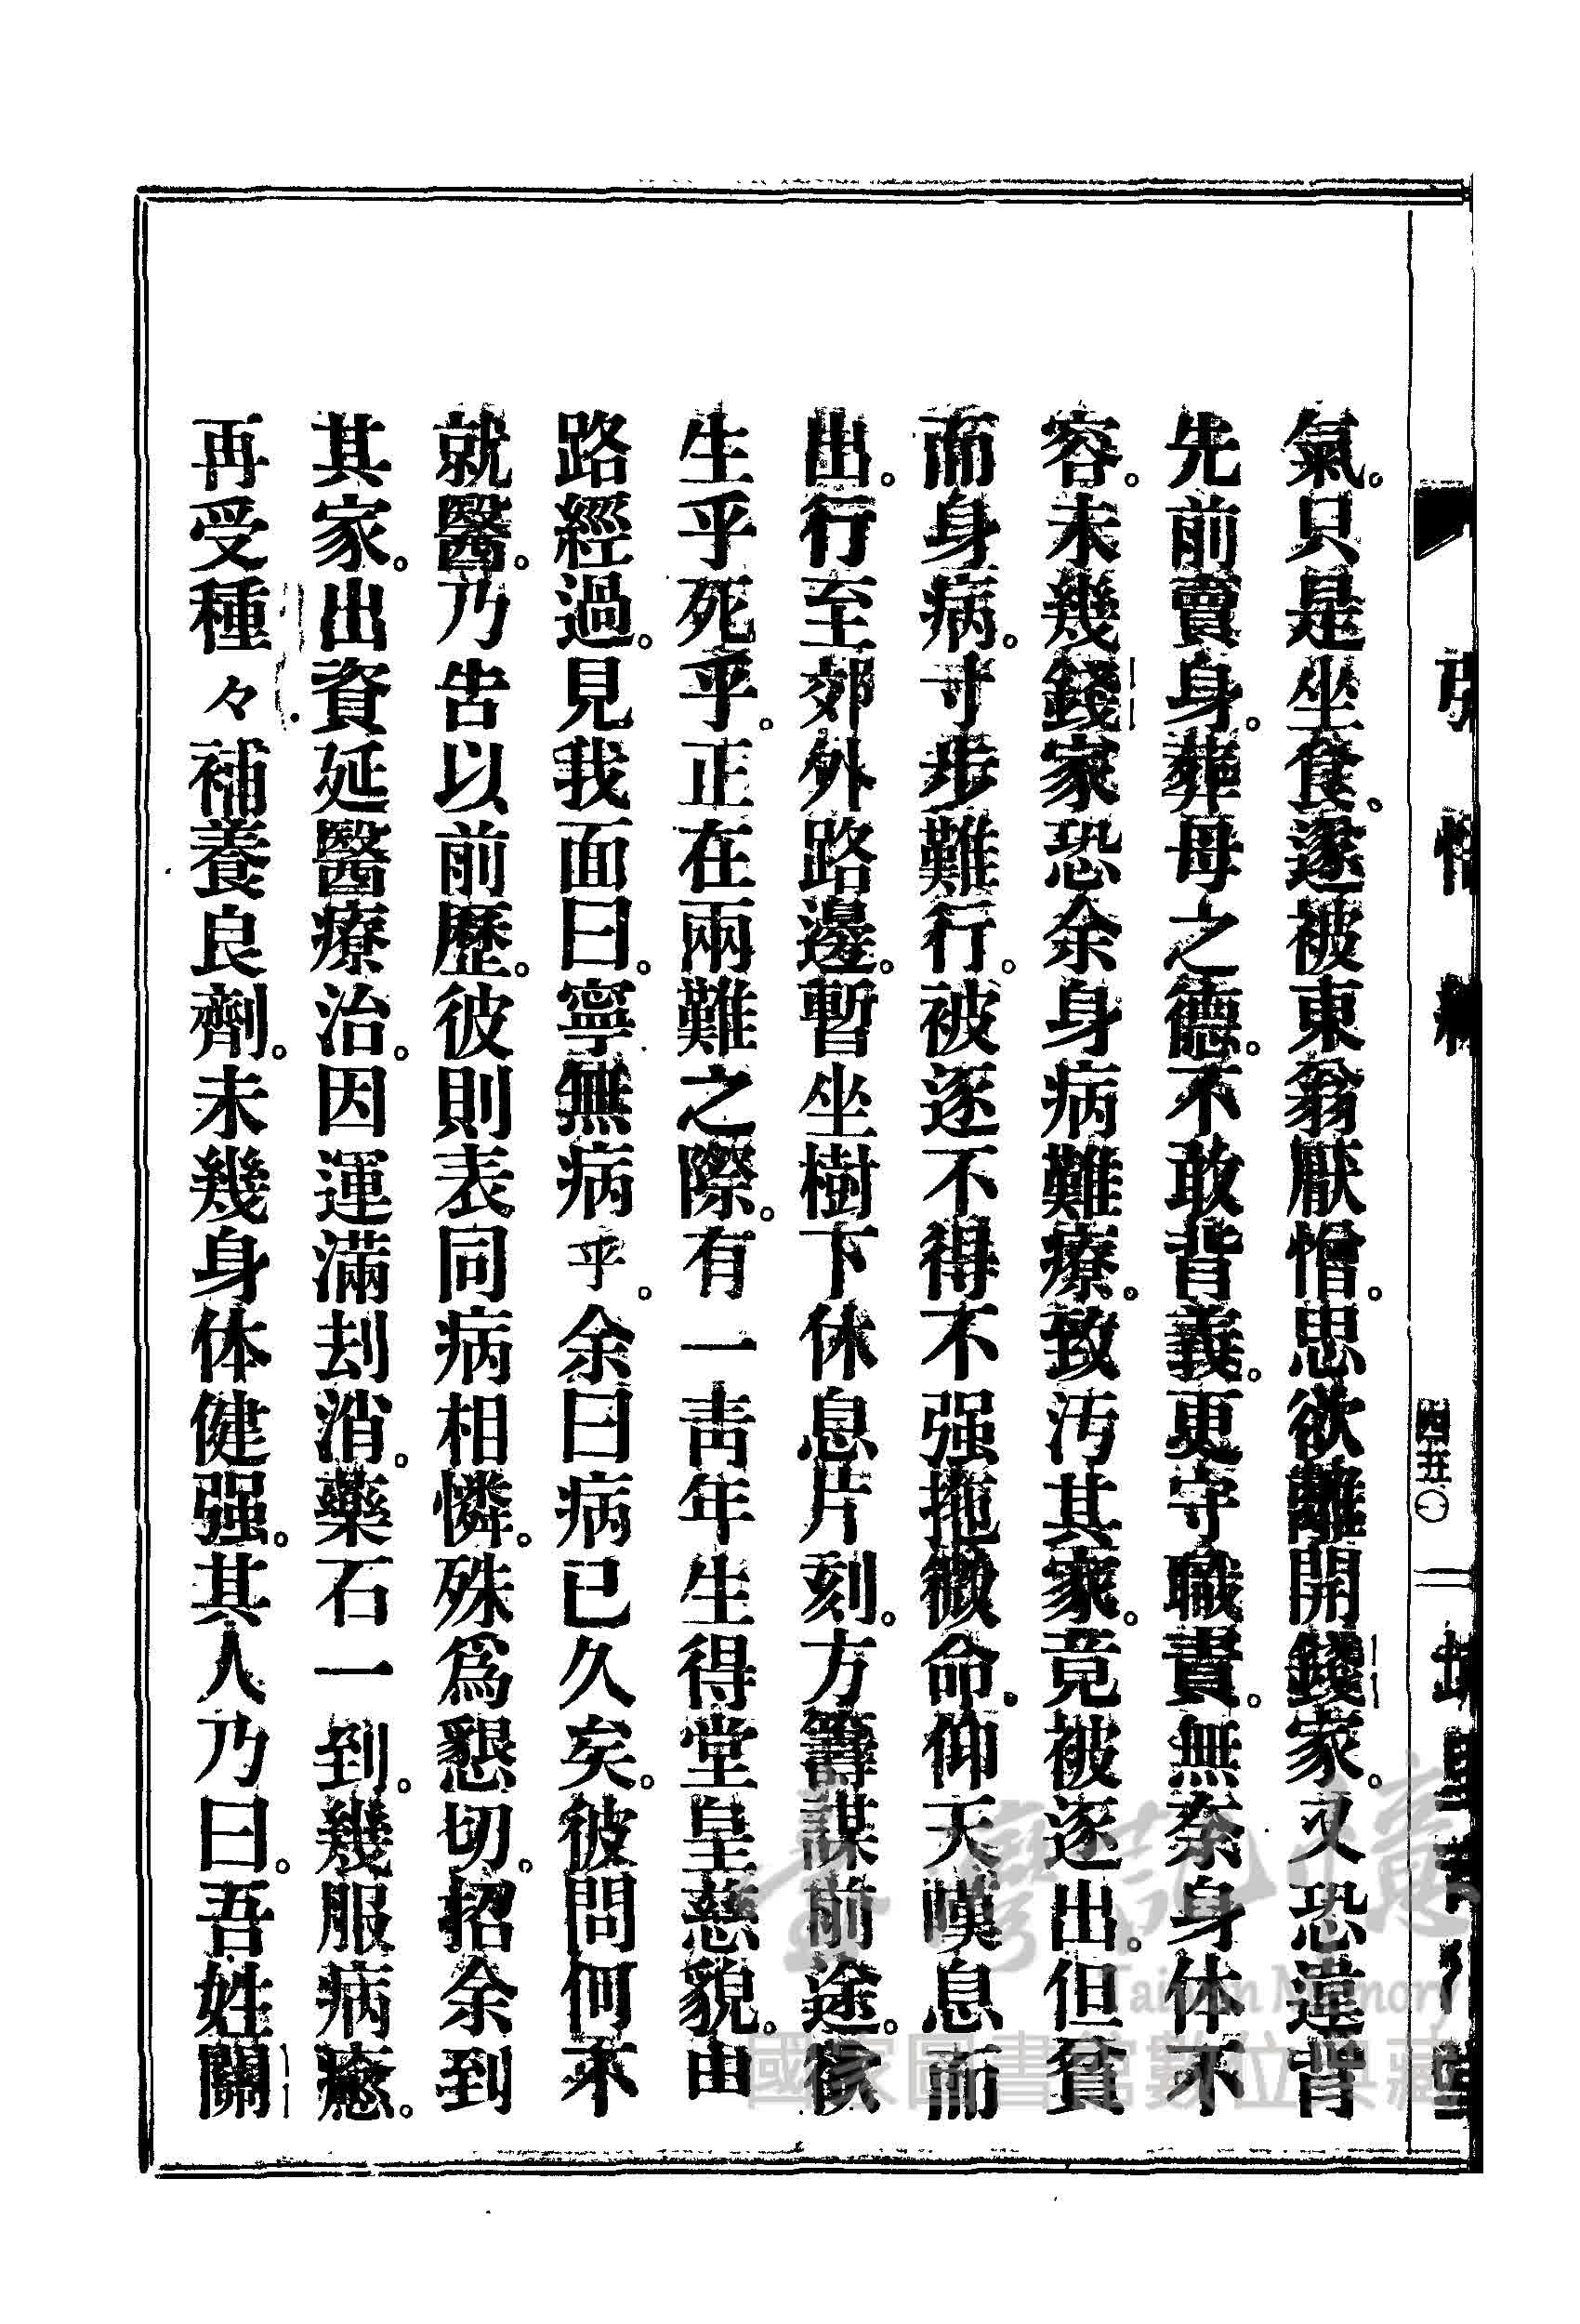 氣。只是坐食。遂被東翁厭憎。思欲離開錢家。又恐違背
先前賣身。葬母之德。不敢背義。更守職責。無奈身体不
容。未幾錢家恐余身病難療。致污其家。竟被逐出。但貧
而身病。寸步難行。被逐不得不强拖微命。仰天嘆息而
出。行至郊外路邊。暫坐樹下休息片刻。方籌謀前途。欲
生乎死乎。正在兩難之際。有一青年生得堂皇慈貌。由
路經過。見我面曰。寧無病乎。余曰病已久矣。彼問何不
就醫。乃告以前歷。彼則表同病相憐。殊爲懇切。招余到
其家。出資延醫療治。因運滿刦消。藥石一到。幾服病癒。
再受種々補養良劑。未幾身体健强。其人乃曰。吾姓關
四五〇
臺灣記憶
Taiwan Memory
國家圖書館數位典藏